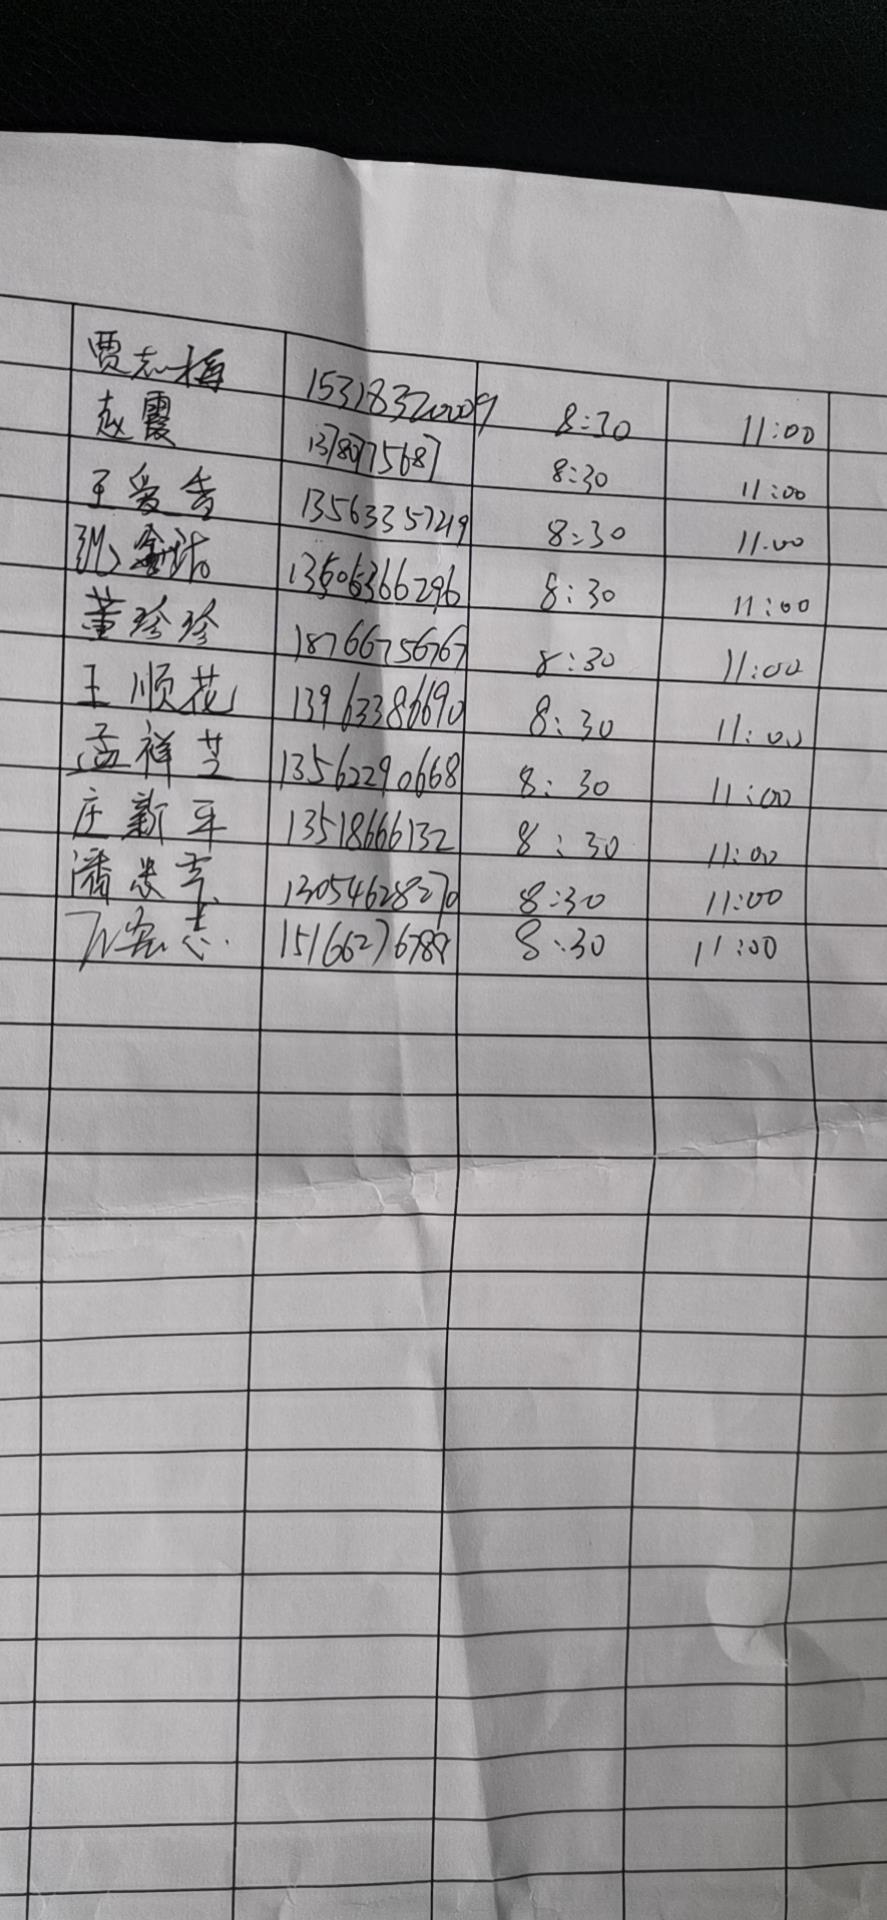 贾志梅 15318320009 8:30 11:00
赵霞 13780775687 8:30 11:00
王爱香 13563357219 8:30 11:00
13506366296 8:30 11:00
董珍珍 18766756767 8:30 11:00
王顺花 13963386690 8:30 11:00
孟祥芝 13562290668 8:30 11:00
庄新平 13518666132 8:30 11:00
潘 13054628270 8:30 11:00
志 15166276788 8:30 11:00